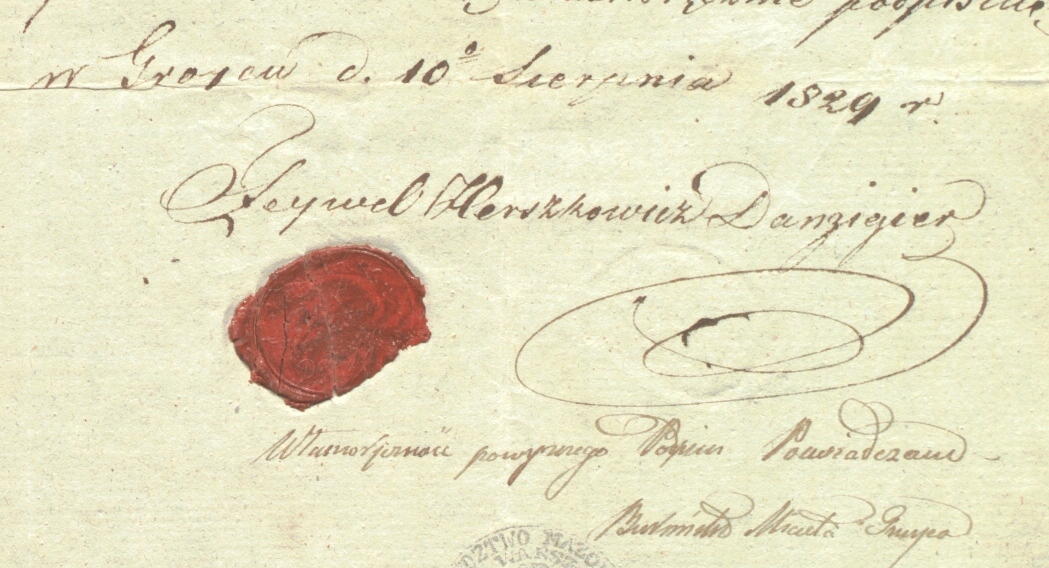 podpisuię
w Groycu d. 10º Sierpnia 1829 r.
Feywel Herszkowicz Danzigier
Własnoręczność powyższego Podpisu Poswiadczam
Burmistrz Miasta
DZTWO MAZO
WARSZ